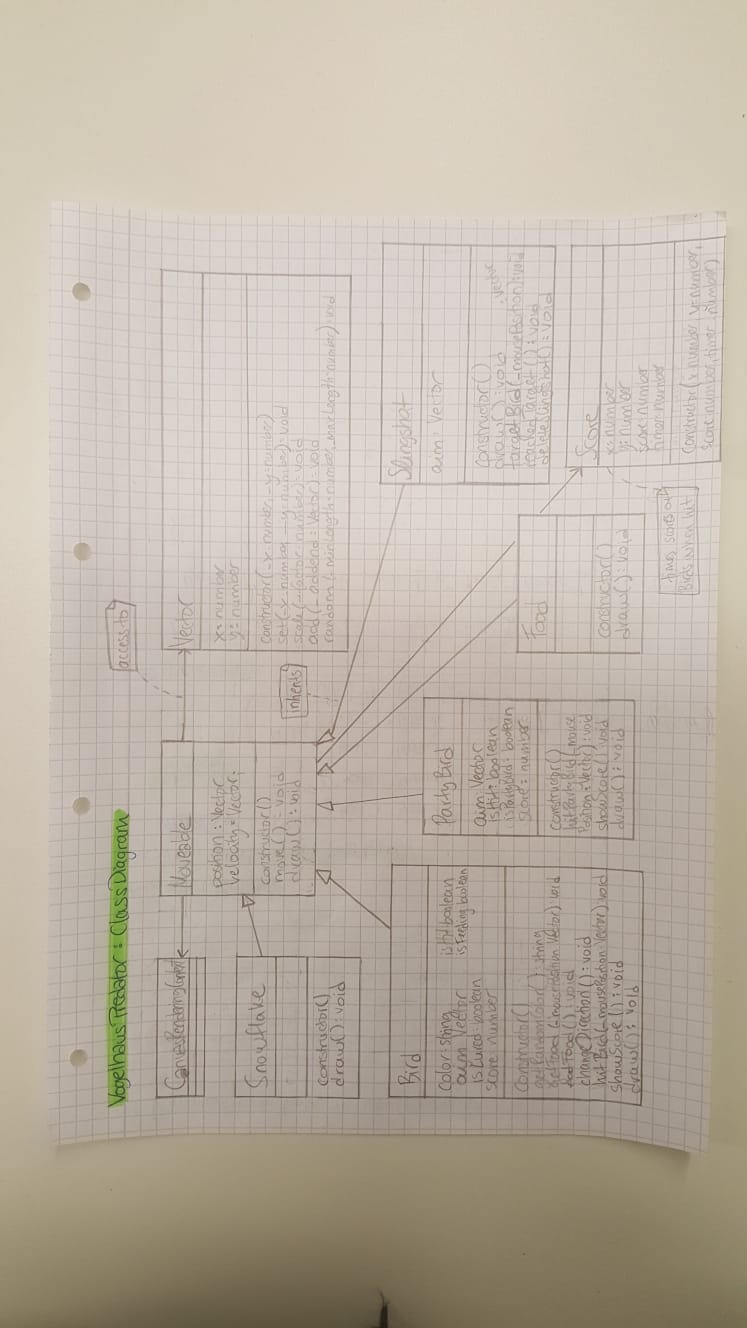 Vogelhaus Predator: Class Diagram
access to
CanvasRenderingContext
Moveable
position: Vector
velocity: Vector.
constructor()
move(): void
draw(): void
Vector
x: number
y: number
Constructor(_x: number, _y: number)
set(_x: number, _y: number): void
scale(_factor: number): void
add(_addend: Vector): void
random(_minLength: number, _maxLength: number): void
inherits
Snowflake
constructor()
draw(): void
Bird
Color: string
aim: Vector
isLured: boolean
score: number
isHit: boolean
isFeeding: boolean
Constructor()
getRandomColor(): string
getFood(_mousePosition: Vector): void
eatFood(): void
changeDirection(): void
hitBird(_mousePosition: Vector): void
showScore(): void
draw(): void
PartyBird
aim: Vector
isHit: boolean
isPartyBird: boolean
score: number
constructor()
hitPartyBird(_mouse
Position: Vector): void
showScore(): void
draw(): void
Food
constructor()
draw(): void
Slingshot
aim: Vector
constructor()
draw(): void
targetBird(_mousePosition: Vector): void
reachedTarget(): void
deleteSlingshot(): void
Score
x: number
y: number
score: number
timer: number
Constructor(x: number, y: number,
score: number, timer: number)
Birds when hit